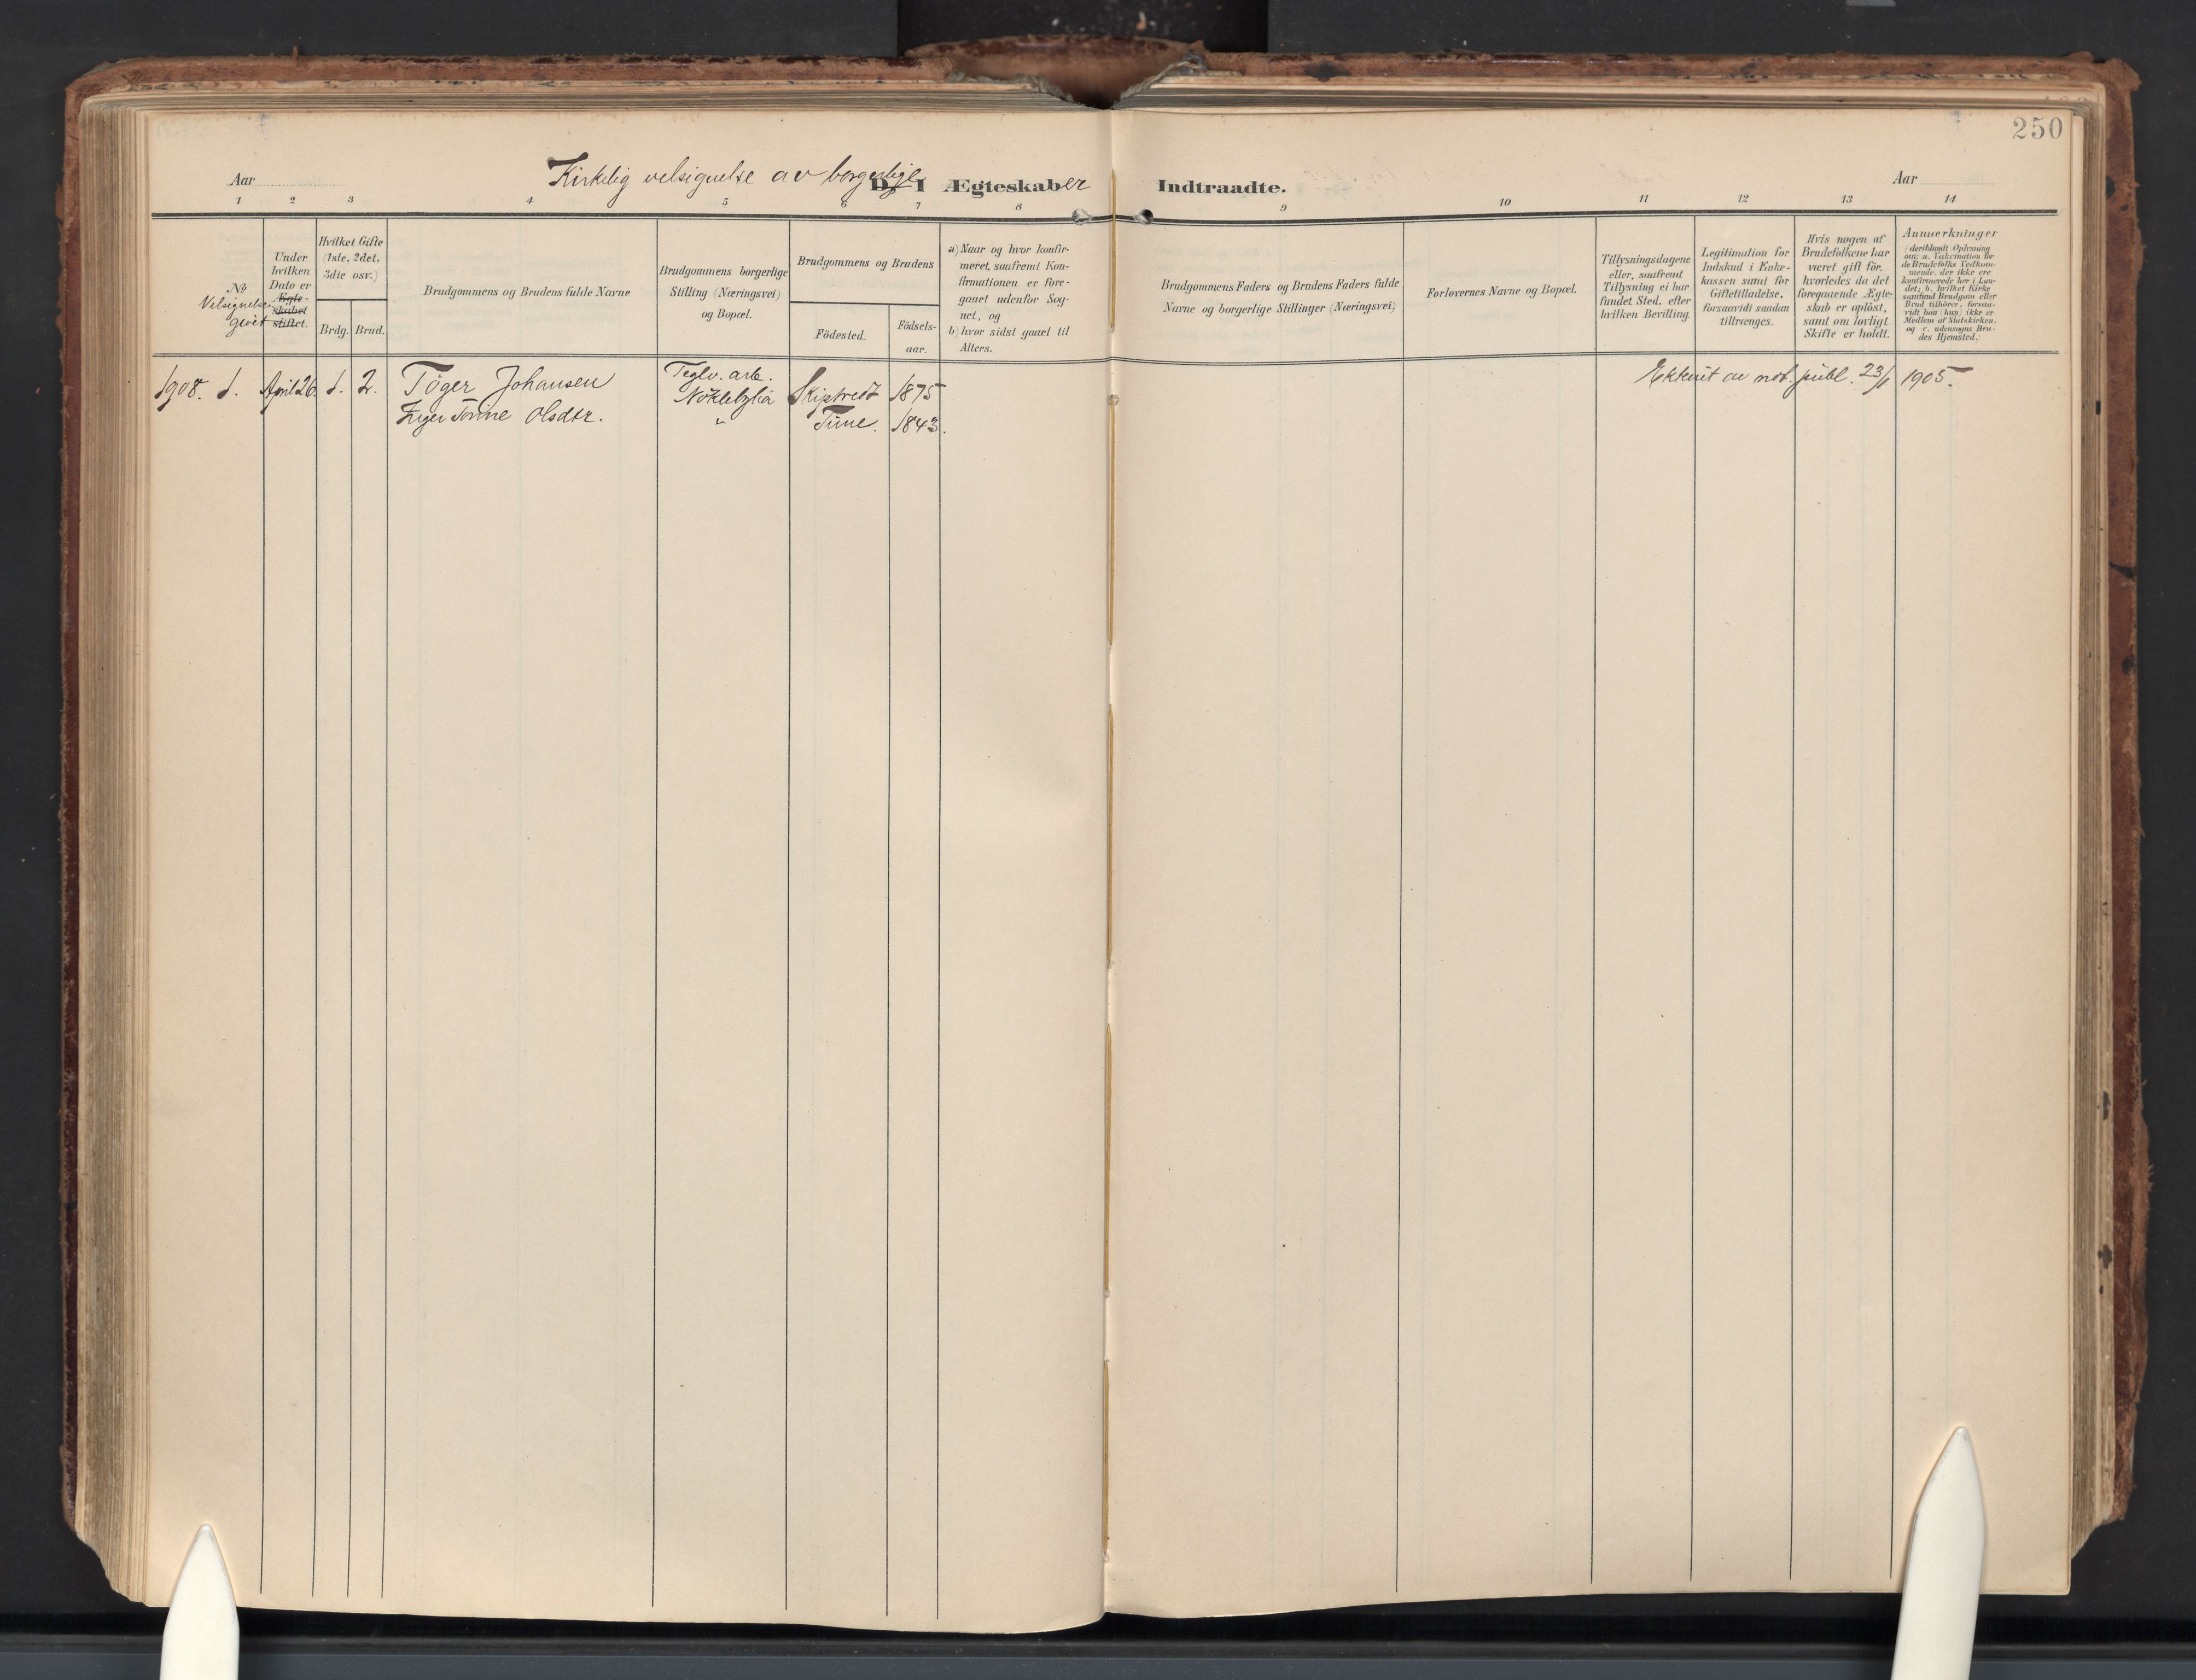 250
Aar
Kirkelig velsignelse av borgerlige
D I Ægteskaber Indtraadte.
Aar
1 2 3 4 5 6 7 8 9 10 11 12 13 14
No
Velsignelse
givet
Under
hvilken
Dato er
Ægte-
skabet
stiftet.
Hvilket Gifte
(1ste, 2det,
3die osv.)
Brdg. Brud.
Brudgommens og Brudens fulde Navne
Brudgommens borgerlige
Stilling (Næringsvei)
og Bopæl.
Brudgommens og Brudens
Födested.
Födsels-
aar.
a) Naar og hvor konfir-
meret, saafremt Kon-
firmationen er fore-
gaaet udenfor Sog-
net, og
b) hvor sidst gaaet til
Alters.
Brudgommens Faders og Brudens Faders fulde
Navne og borgerlige Stillinger (Næringsvei)
Forlovernes Navne og Bopæl.
Tillysningsdagene
eller, saafremt
Tillysning ei har
fundet Sted, efter
hvilken Bevilling.
Legitimation for
Indskud i Enke-
kassen samt for
Giftetilladelse,
forsaavidt saadan
tiltrænges.
Hvis nogen af
Brudefolkene har
været gift för,
hvorledes da det
foregaaende Ægte-
skab er oplöst,
samt om lovligt
Skifte er holdt.
Anmærkninger
(deriblandt Oplysning
om: a. Vaccination for
de Brudefolks Vedkom-
mende, der ikke ere
konfirmerede her i Lan-
det; b. hvilket Kirke
samfund Brudgom eller
Brud tilhörer, forsaa-
vidt han (hun) ikke er
Medlem af Statskirken,
og c. udensogns Bru-
des Hjemsted.)
1908. 1. April 26. 1. 2. Töger Johansen Teglv. arb. Skiptvedt 1875 av not. publ. 23/1 1905.
Nöklebylia
Olsdtr. " Tune. 1843.